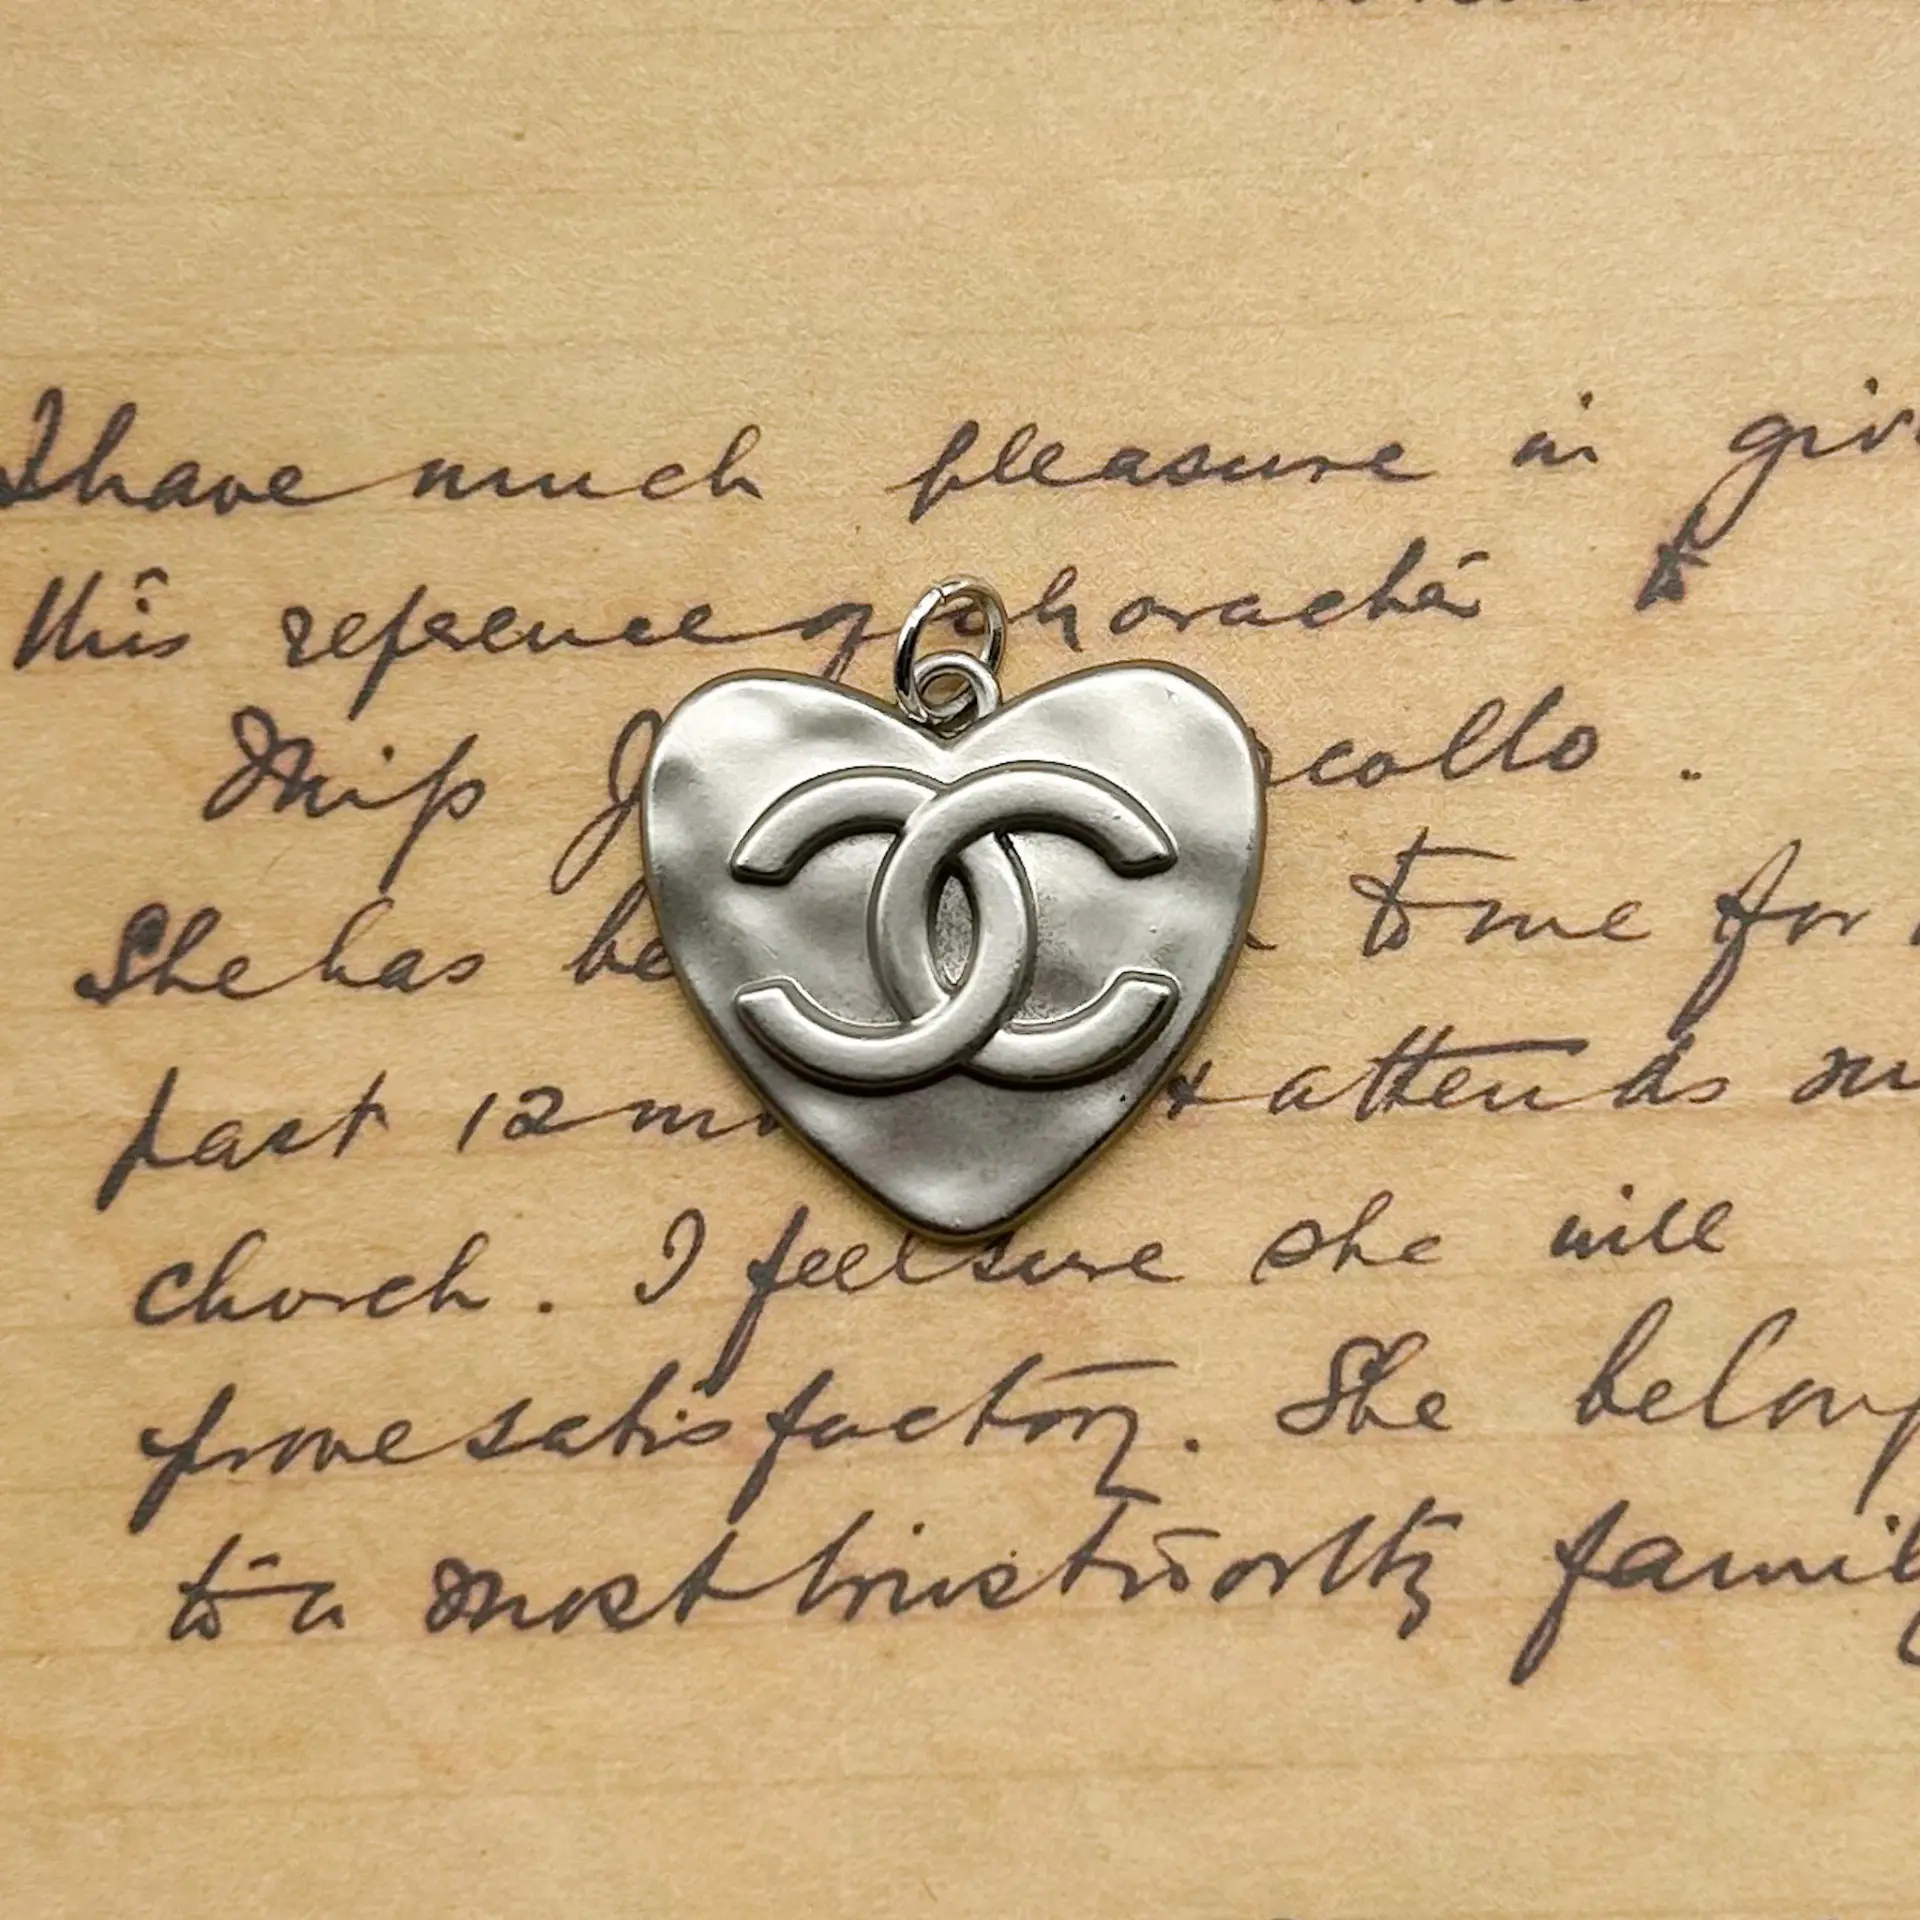 I have much pleasure in giv
this reference of character to
Miss J collo.
She has be time for
past 12 m & attends my
church. I feel sure she will
prove satisfactory. She belong
to a most trustworthy famil